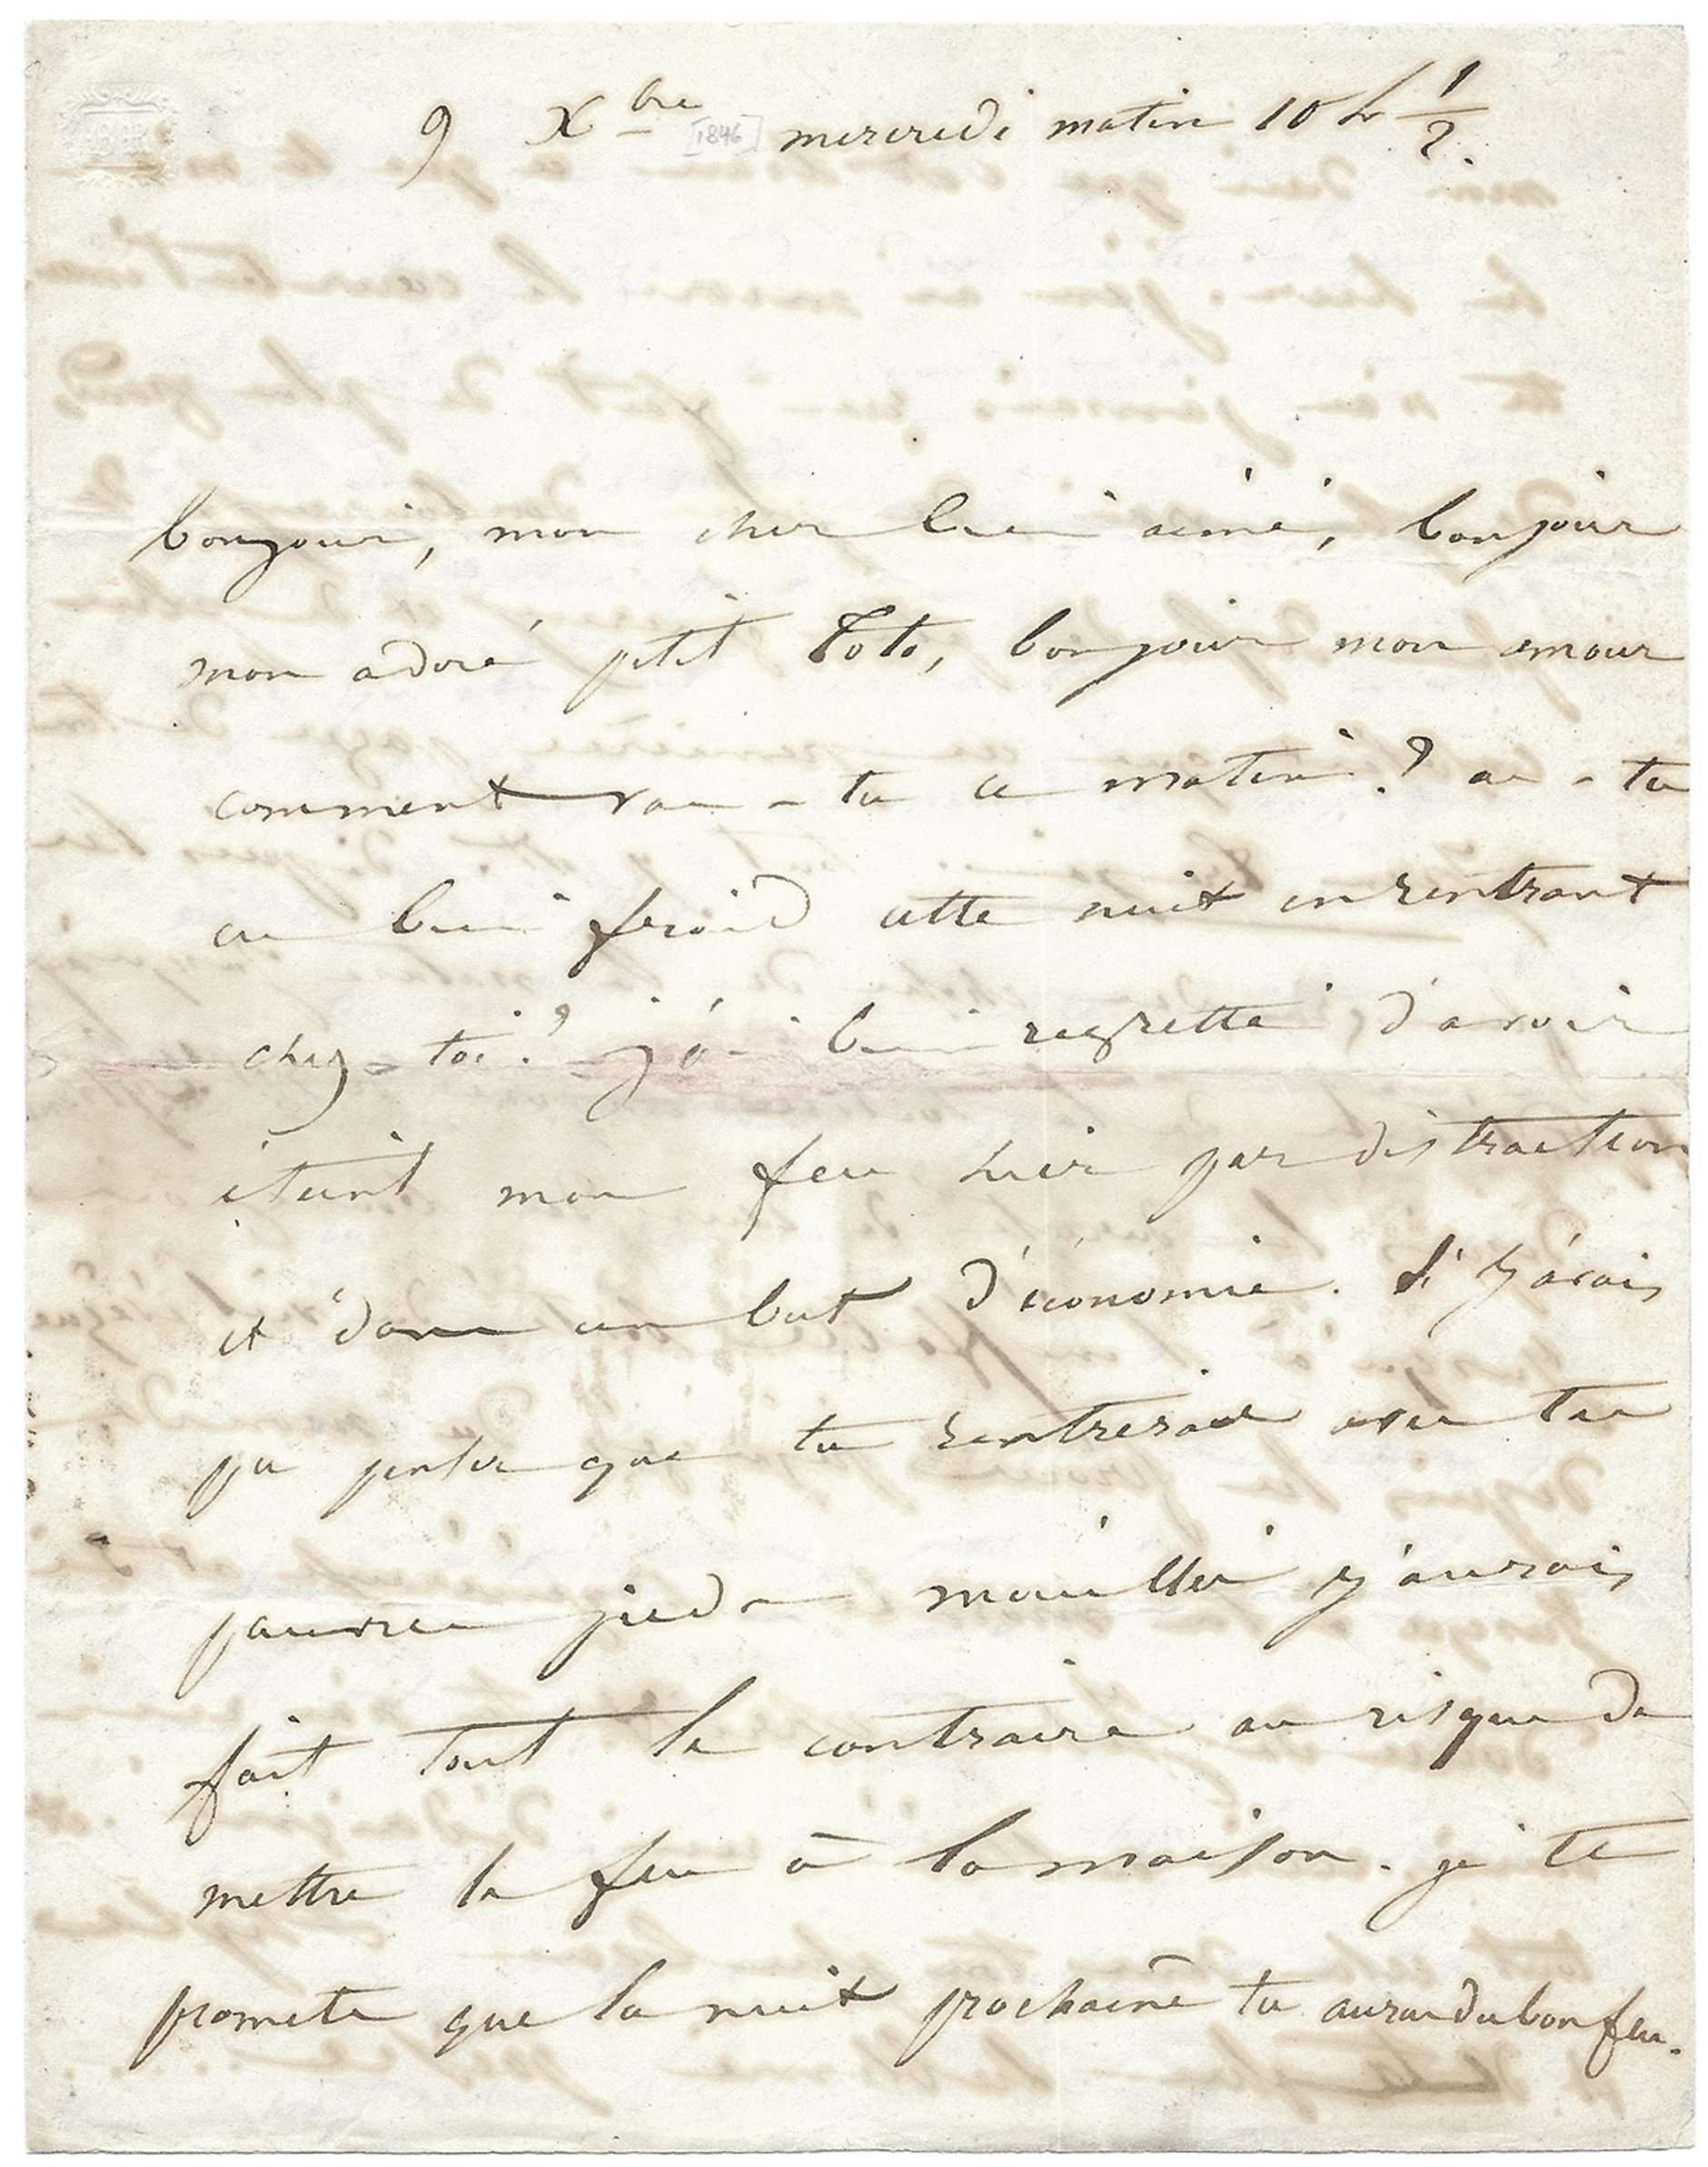 9 Xbre [1846] mercredi matin 10 h 1/2.
bonjour, mon cher bien aimé, bonjour
mon adoré petit Toto, bonjour mon amour
comment vas-tu ce matin? as-tu
eu bien froid cette nuit en rentrant
chez-toi? j'ai bien regretté d'avoir
éteint mon feu hier par distraction
et dans un but d'économie. Si j'avais
pu penser que tu rentrerais avec tes
pauvres pieds mouillés j'aurais
fait tout le contraire au risque de
mettre le feu à la maison. je te
promets que la nuit prochaine tu auras du bon feu.